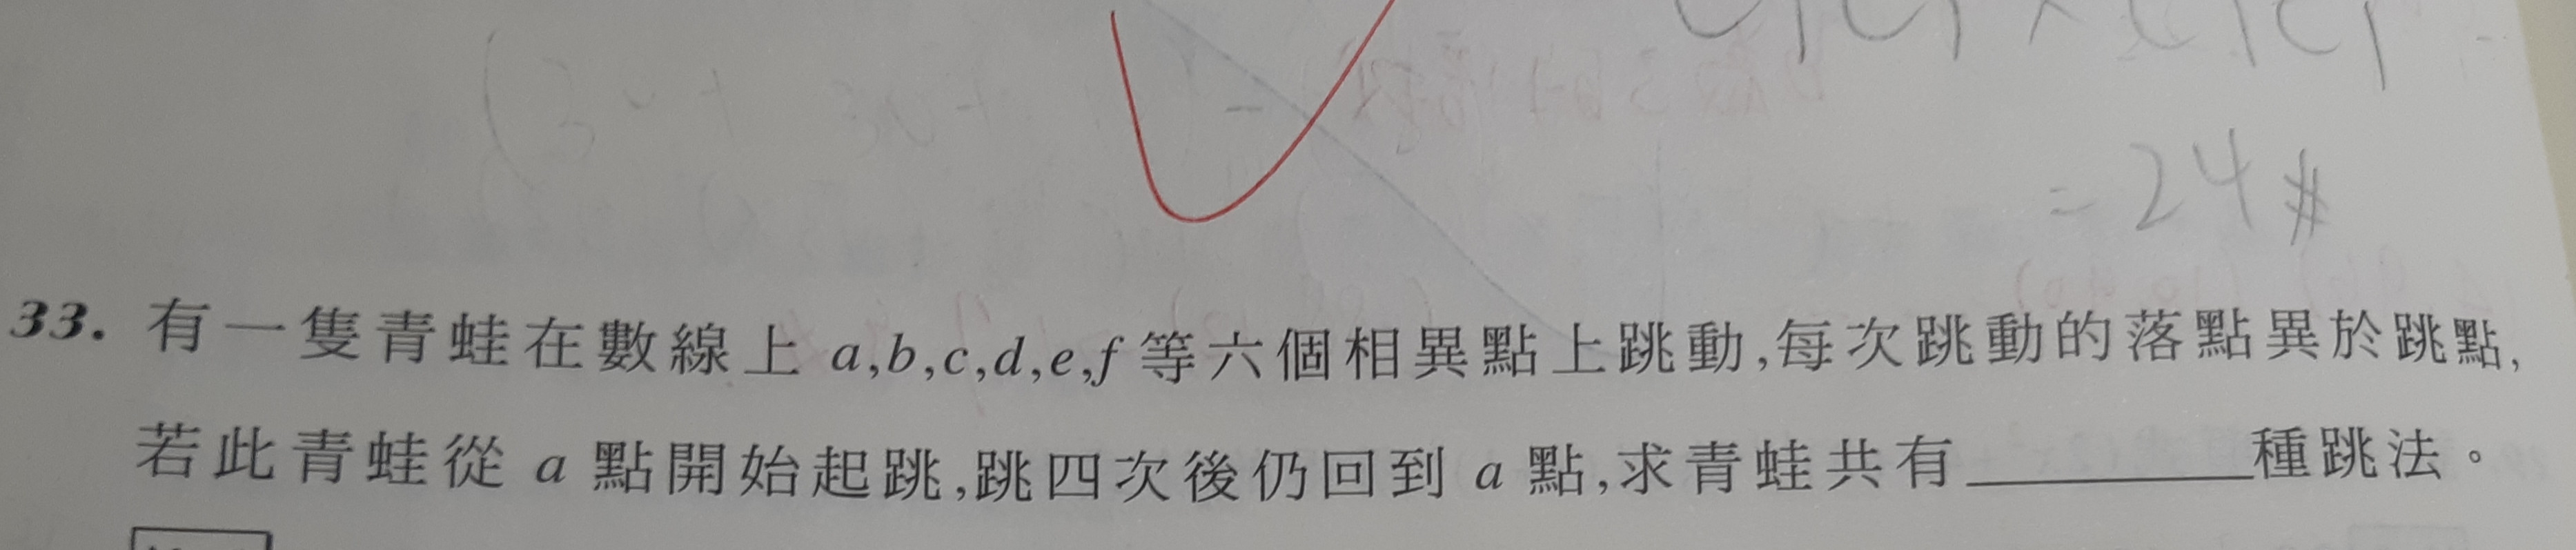 = 24 #
33. 有一隻青蛙在數線上 a,b,c,d,e,f 等六個相異點上跳動,每次跳動的落點異於跳點,
若此青蛙從 a 點開始起跳,跳四次後仍回到 a 點,求青蛙共有________種跳法。